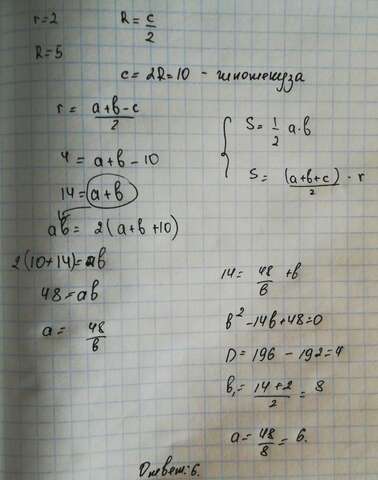 r=2
R = c/2
R=5
c = 2R=10 - гипотенуза
r = (a+b-c)/2
4 = a+b-10
14 = a+b
ab = 2(a+b+10)
2(10+14)=ab
48=ab
a = 48/b
{ S = 1/2 a·b
S = (a+b+c)/2 · r
14 = 48/b + b
b²-14b+48=0
D = 196 - 192=4
b₁ = (14+2)/2 = 8
a = 48/8 = 6.
Ответ: 6.